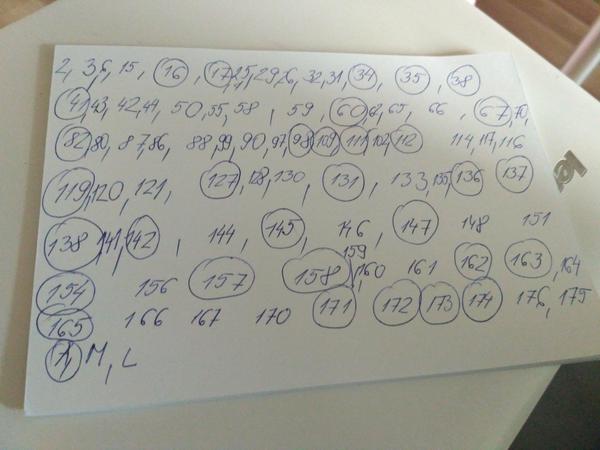 2, 3, 6, 15, 16, 17, 25, 29, 26, 32, 31, 34, 35, 38
41, 43, 42, 49, 50, 55, 58, 59, 60, 62, 65, 66, 67, 70,
82, 80, 87, 86, 88, 99, 90, 97, 98, 109, 111, 102, 112 114, 117, 116
119, 120, 121, 127, 128, 130, 131, 133, 135, 136 137
138, 141, 142, 144, 145, 146, 147 148 151
154 156 157 158, 159, 160 161 162 163, 164
165 166 167 170 171 172 173 174 176, 175
M, L